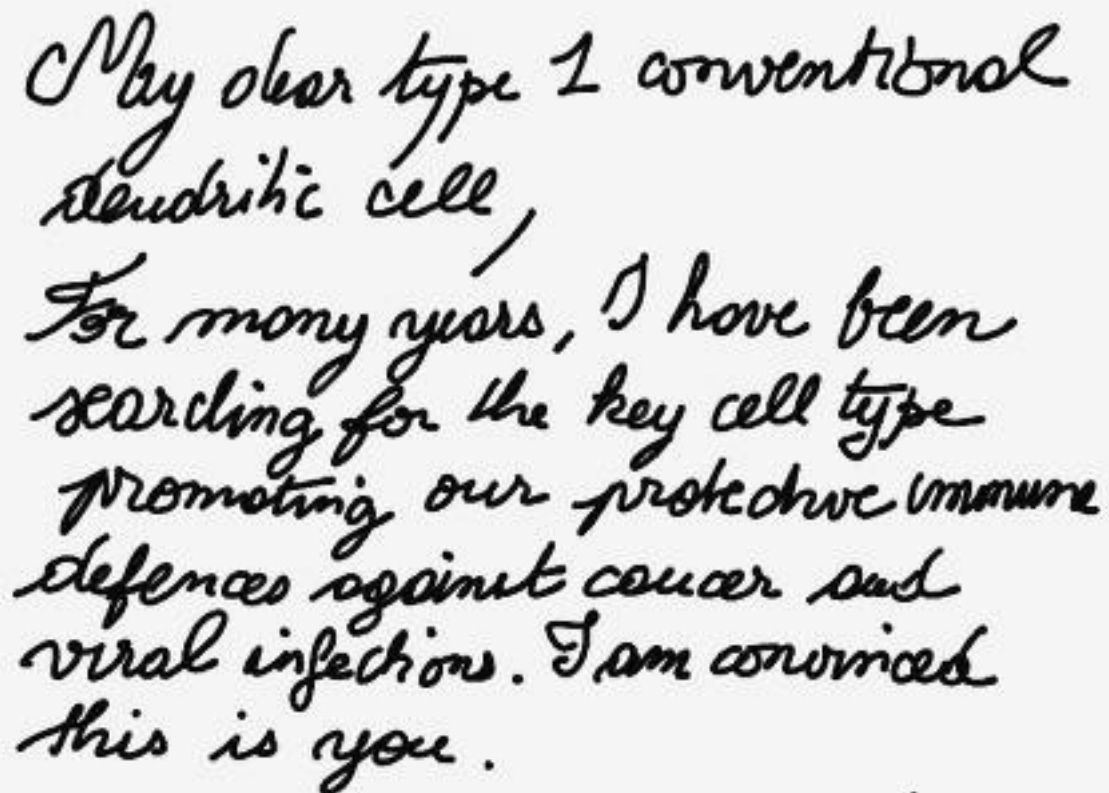 My dear type 1 conventional
dendritic cell,
For many years, I have been
searching for the key cell type
promoting our protective immune
defences against cancer and
viral infections. I am convinced
this is you.